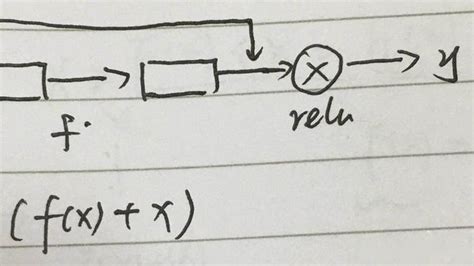 y
f.
relu
(f(x) + x)